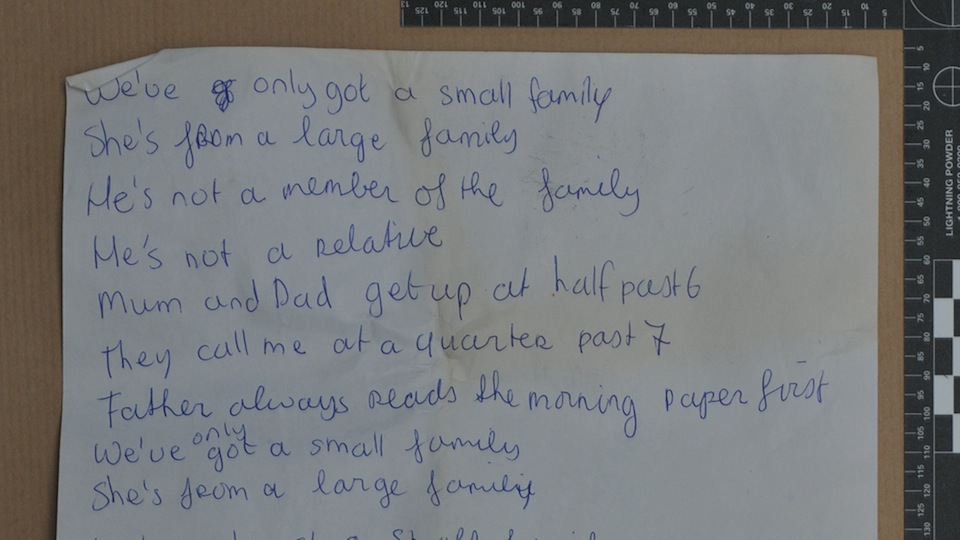 125 120 115 110 105 100 95 90 85 80 75 70 65 60 55 50 45 40 35 30 25 20 15 10 5
We've only got a small family
She's from a large family
He's not a member of the family
He's not a relative
Mum and Dad get up at half past 6
They call me at a quarter past 7
Father always reads the morning paper first
We've only got a small family
She's from a large family
a small
5 10 15 20 25 30 35 40 45 50 55 60 65 70 75 80 85 90 95 100 105 110 115 120 125 130
LIGHTNING POWDER